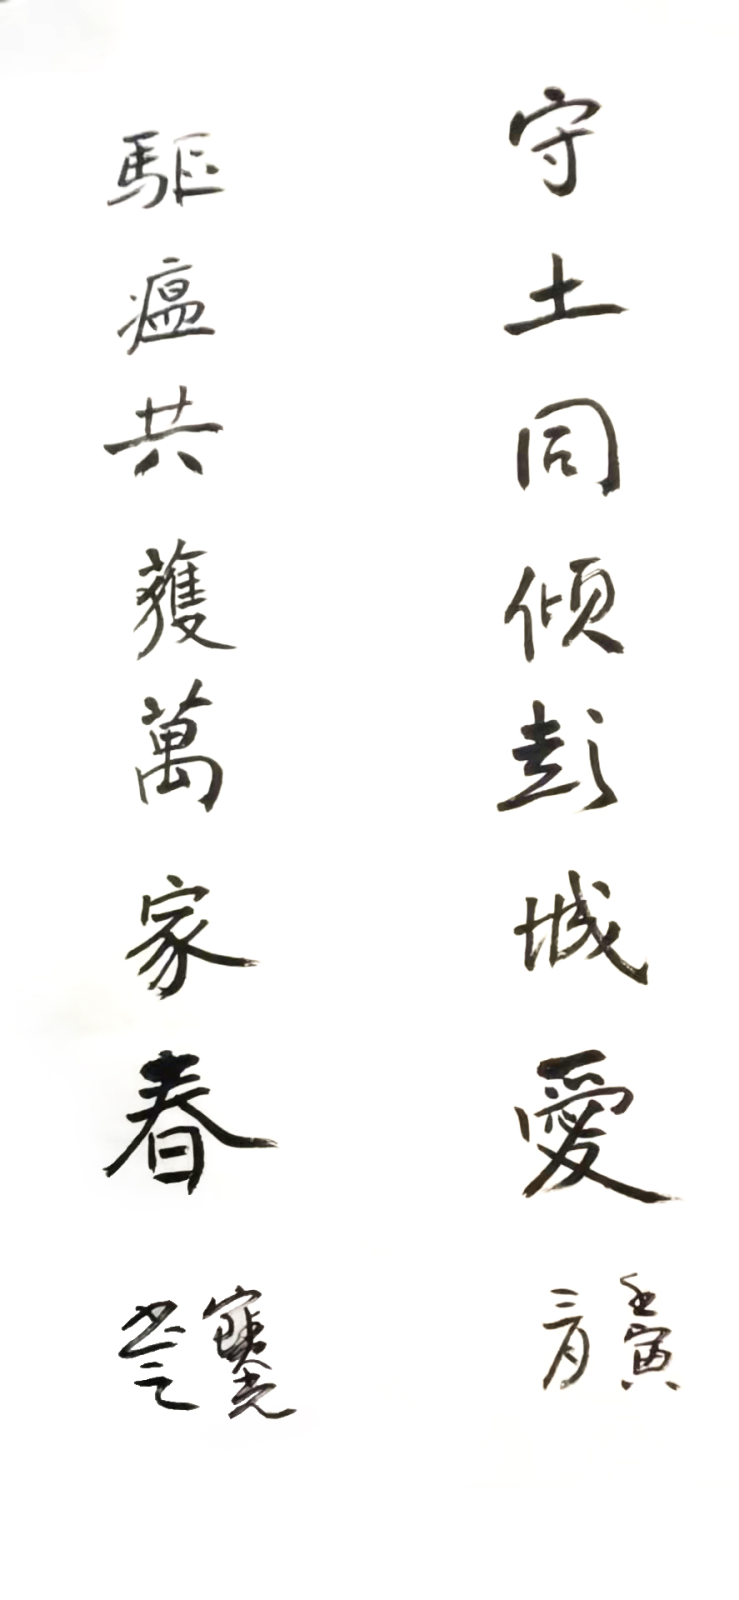 守土同倾彭城愛
壬寅
三月
驅瘟共獲萬家春
寳光
書之